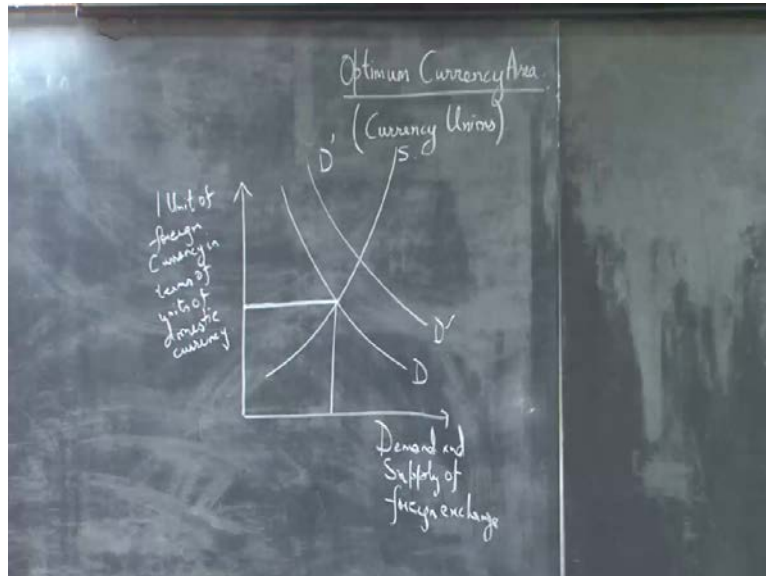 Optimum Currency Area.
(Currency Unions)
D'
S.
1 Unit of
foreign
Currency in
terms of
units of
domestic
currency
D'
D
Demand and
Supply of
foreign exchange